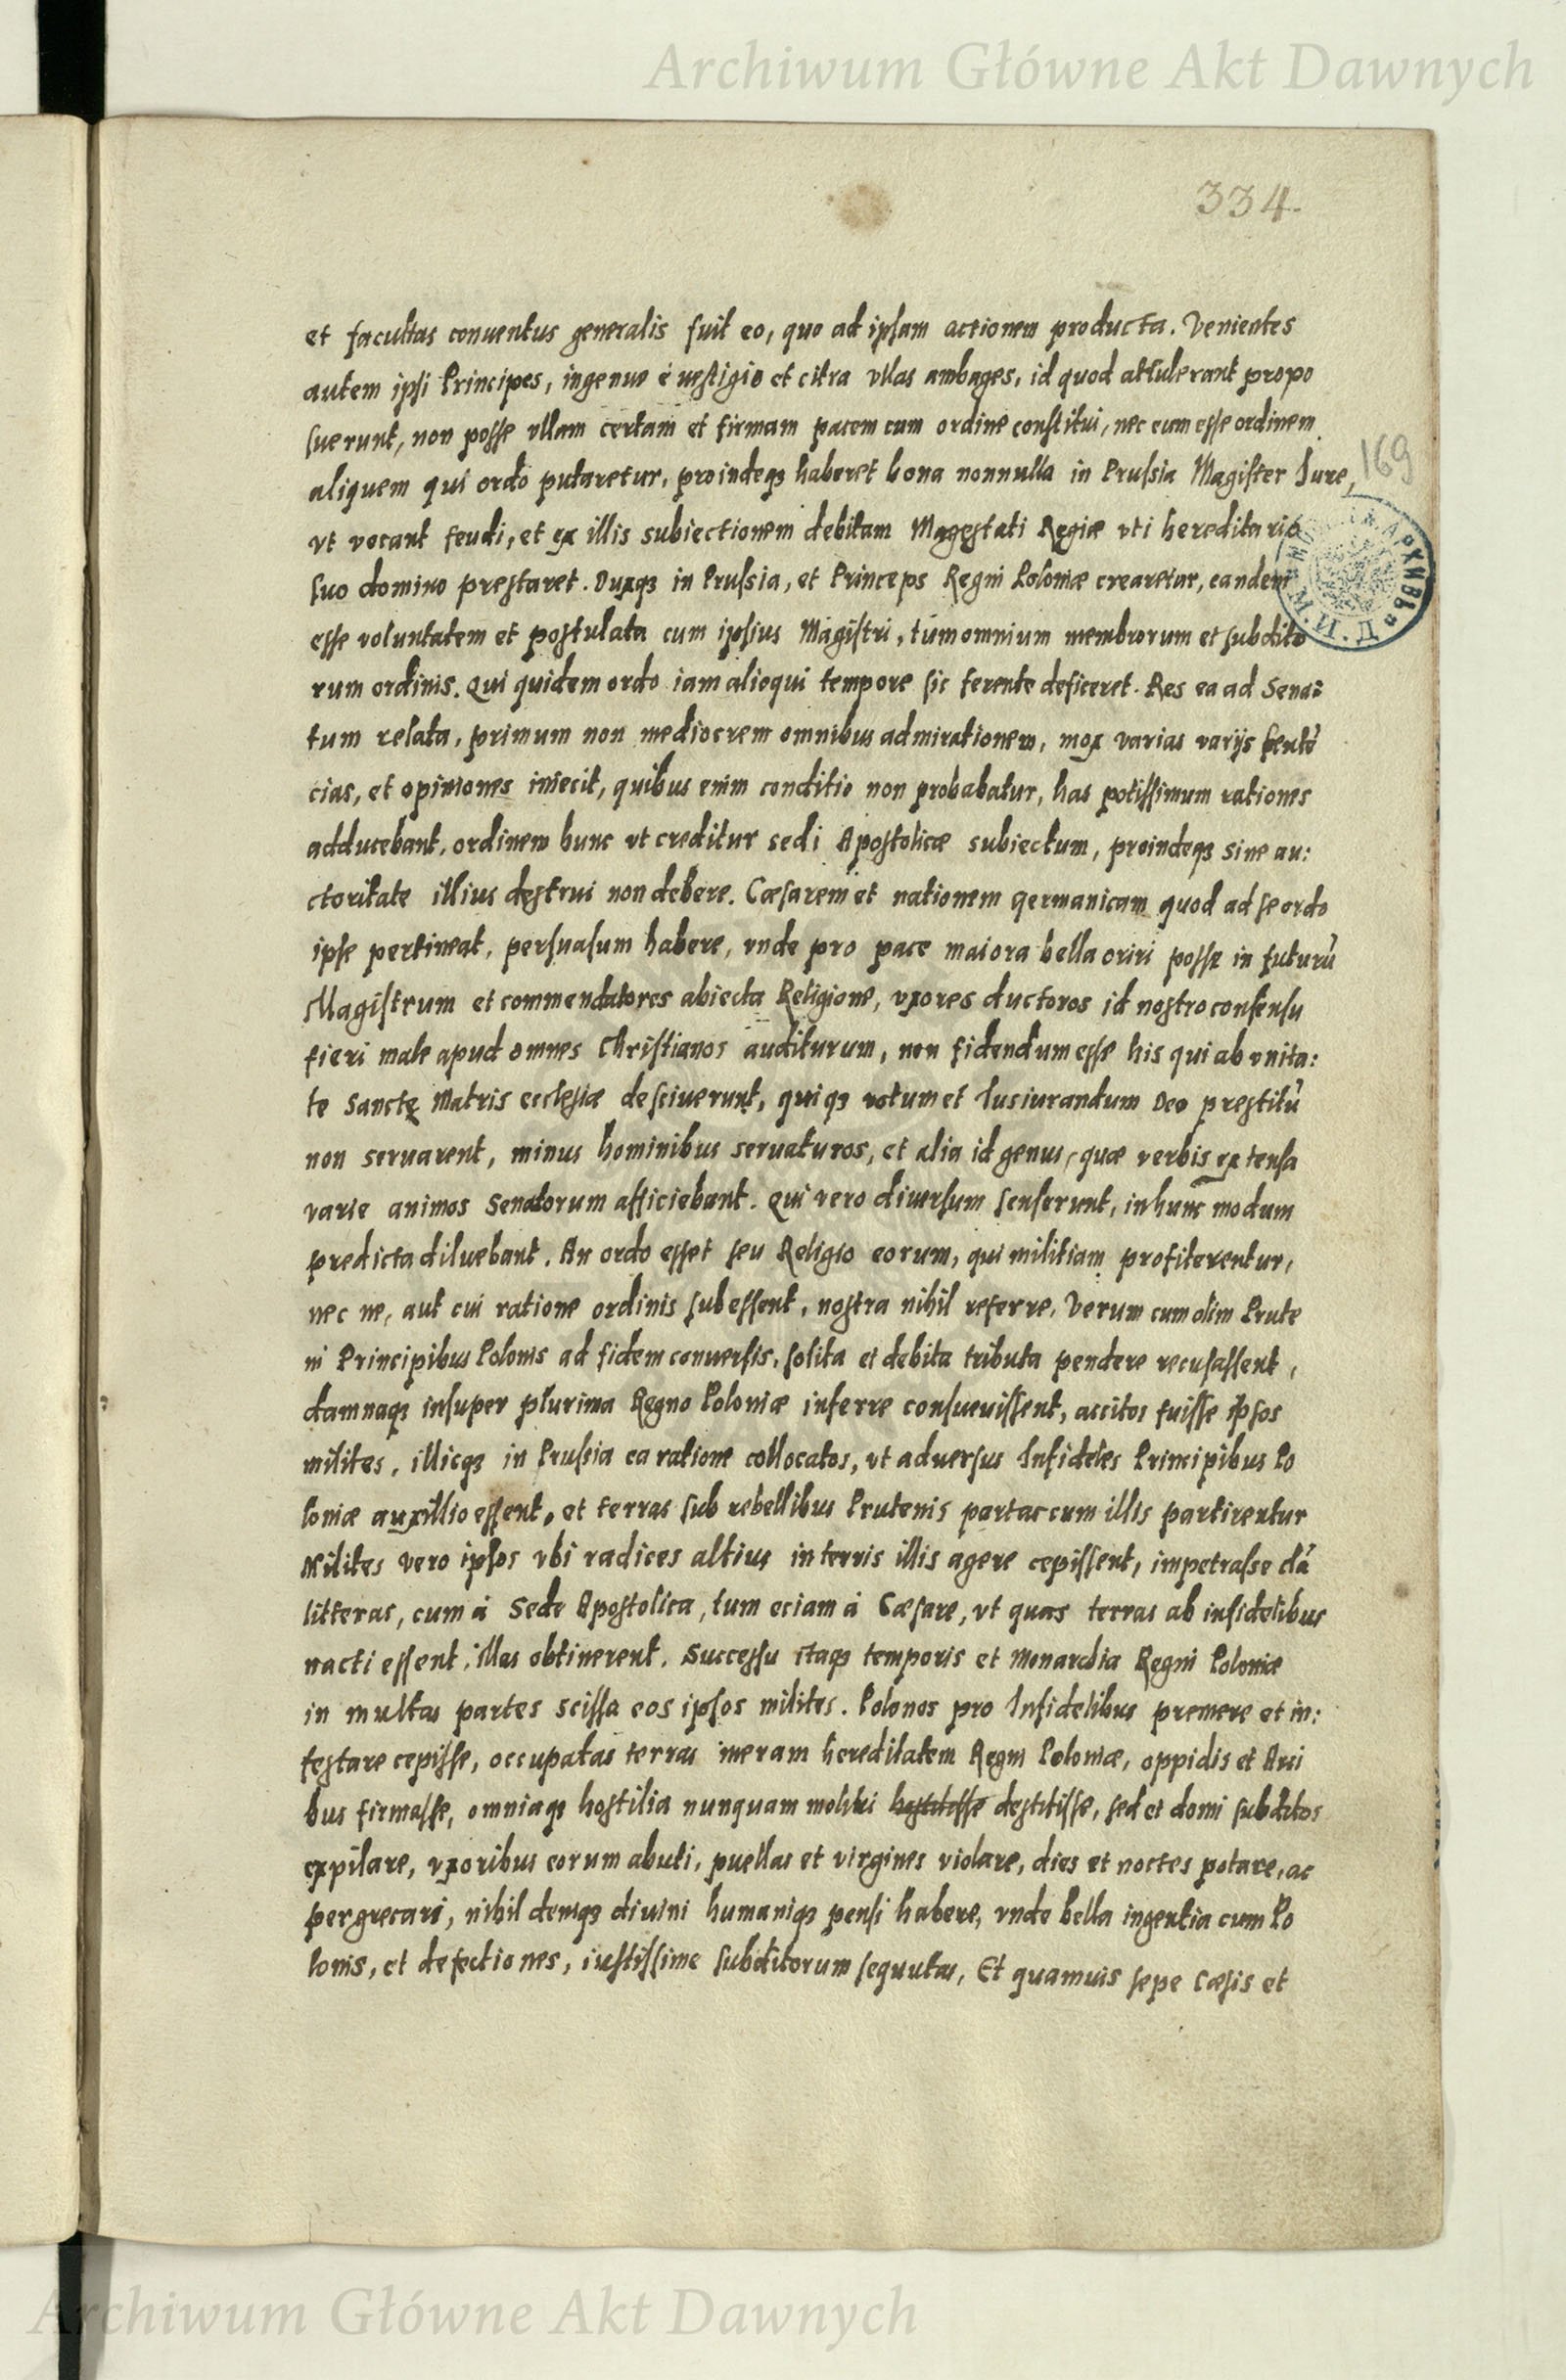 Archiwum Główne Akt Dawnych
334.
et facultas conuentus generalis fuit eo, quo ad ipsam actionem producta. Venientes
autem ipsi Principes, ingenue è uestigio et citra vllas ambages, id quod attulerant propo
suerunt, non posse vllam certam et firmam pacem cum ordine constitui, nec eum esse ordinem
aliquem qui ordo putaretur, proindeqз haberet bona nonnulla in Prussia Magister Iure,
169
vt vocant feudi, et ex illis subiectionem debitam Magestati Regiæ vti hereditario
suo domino prestaret. Duxqз in Prussia, et Princeps Regni Poloniæ crearetur, eandem
esse voluntatem et postulata cum ipsius Magistri, tum omnium membrorum et subdito
rum ordinis. Qui quidem ordo iam alioqui tempore sic ferente deficeret. Res ea ad Sena:
tum relata, primum non mediocrem omnibus admirationem, mox varias varijs sentē
cias, et opiniones iniecit, quibus enim conditio non probabatur, has potissimum rationes
adducebant, ordinem hunc vt creditur sedi Apostolicæ subiectum, proindeqз sine au:
ctoritate illius destrui non debere. Cæsarem et nationem germanicam quod ad se ordo
ipse pertineat, persuasum habere, vnde pro pace maiora bella oriri posse in futurū
Magistrum et commendatores abiecta Religione, vxores ductoros id nostro consensu
fieri male apud omnes Christianos auditurum, non fidendum esse his qui ab vnita:
te Sanctę Matris ecclesiæ desciuerunt, quiqз votum et Iusiurandum Deo prestitū
non seruarent, minus hominibus seruaturos, et alia id genus, quæ verbis extensa
varie animos Senatorum afficiebant. Qui vero diuersum senserunt, in hunc modum
predicta diluebant. An ordo esset seu Religio eorum, qui militiam profiterentur,
nec ne, aut cui ratione ordinis subessent, nostra nihil referre. Verum cum olim Prute
ni Principibus Polonis ad fidem conuersis, solita et debita tributa pendere recusassent,
damnaqз insuper plurima Regno Poloniæ inferre consueuissent, accitos fuisse ipsos
milites, illicqз in Prussia ea ratione collocatos, vt aduersus Infideles Principibus Po
loniæ auxillio essent, et terras sub rebellibus Prutenis partas cum illis partirentur
Milites vero ipsos vbi radices altius in terris illis agere cepissent, impetrasse clā
litteras, cum á Sede Apostolica, tum eciam á Cæsare, vt quas terras ab infidelibus
nacti essent, illas obtinerent. Successu itaqз temporis et Monarchia Regni Poloniæ
in multas partes scissa eos ipsos milites. Polonos pro Infidelibus premere et in:
festare cepisse, occupatas terras meram hereditatem Regni Poloniæ, oppidis et Arci
bus firmasse, omniaqз hostilia nunquam moliri destitisse, sed et domi subditos
expilare, vxoribus eorum abuti, puellas et virgines violare, dies et noctes potare, ac
pergrecari, nihil deniqз diuini humaniqз pensi habere, vnde bella ingentia cum Po
lonis, et defectiones, iustissime subditorum sequutas, Et quamuis sepe cæsis et
Archiwum Główne Akt Dawnych